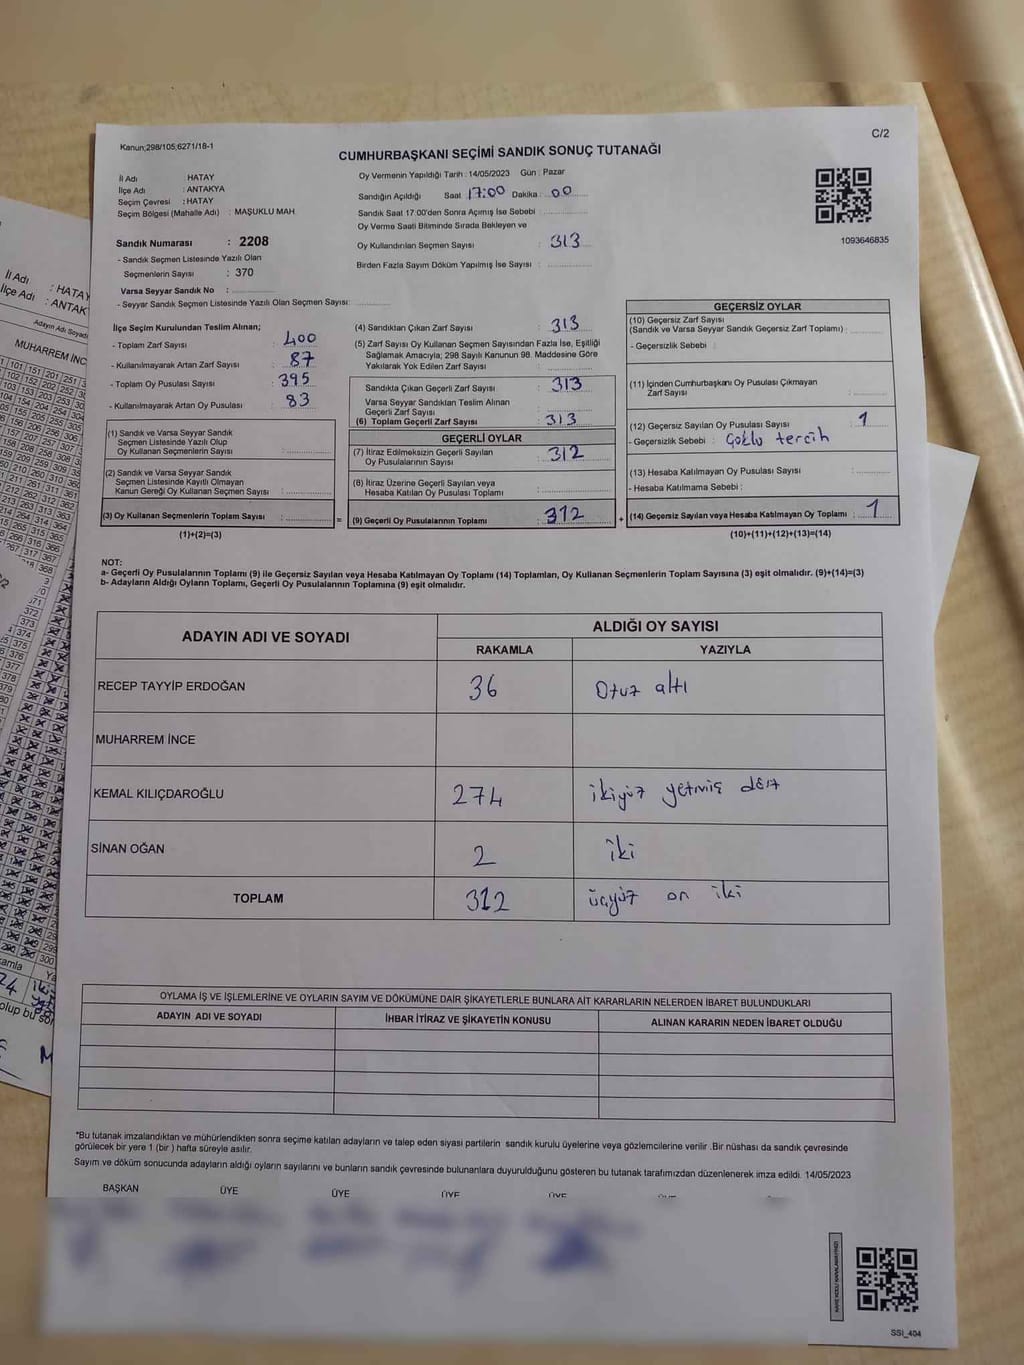 Kanun;298/105;6271/18-1
C/2
CUMHURBAŞKANI SEÇİMİ SANDIK SONUÇ TUTANAĞI
İl Adı : HATAY
İlçe Adı : ANTAKYA
Seçim Çevresi : HATAY
Seçim Bölgesi (Mahalle Adı) : MAŞUKLU MAH.
Sandık Numarası : 2208
- Sandık Seçmen Listesinde Yazılı Olan
Seçmenlerin Sayısı : 370
Varsa Seyyar Sandık No :
- Seyyar Sandık Seçmen Listesinde Yazılı Olan Seçmen Sayısı:
Oy Vermenin Yapıldığı Tarih : 14/05/2023 Gün : Pazar
Sandığın Açıldığı Saat 17:00 Dakika : 00
Sandık Saat 17:00'den Sonra Açımış İse Sebebi :
Oy Verme Saati Bitiminde Sırada Bekleyen ve
Oy Kullandırılan Seçmen Sayısı : 313
Birden Fazla Sayım Döküm Yapılmış İse Sayısı :
1093646835
İlçe Seçim Kurulundan Teslim Alınan;
- Toplam Zarf Sayısı : 400
- Kullanılmayarak Artan Zarf Sayısı : 87
- Toplam Oy Pusulası Sayısı : 395
- Kullanılmayarak Artan Oy Pusulası : 83
(1) Sandık ve Varsa Seyyar Sandık
Seçmen Listesinde Yazılı Olup
Oy Kullanan Seçmenlerin Sayısı :
(2) Sandık ve Varsa Seyyar Sandık
Seçmen Listesinde Kayıtlı Olmayan
Kanun Gereği Oy Kullanan Seçmen Sayısı :
(3) Oy Kullanan Seçmenlerin Toplam Sayısı :
(1)+(2)=(3)
(4) Sandıktan Çıkan Zarf Sayısı : 313
(5) Zarf Sayısı Oy Kullanan Seçmen Sayısından Fazla İse, Eşitliği
Sağlamak Amacıyla; 298 Sayılı Kanunun 98. Maddesine Göre
Yakılarak Yok Edilen Zarf Sayısı :
Sandıkta Çıkan Geçerli Zarf Sayısı : 313
Varsa Seyyar Sandıktan Teslim Alınan
Geçerli Zarf Sayısı :
(6) Toplam Geçerli Zarf Sayısı : 313
GEÇERLİ OYLAR
(7) İtiraz Edilmeksizin Geçerli Sayılan
Oy Pusulalarının Sayısı : 312
(8) İtiraz Üzerine Geçerli Sayılan veya
Hesaba Katılan Oy Pusulası Toplamı :
= (9) Geçerli Oy Pusulalarının Toplamı : 312 +
GEÇERSİZ OYLAR
(10) Geçersiz Zarf Sayısı
(Sandık ve Varsa Seyyar Sandık Geçersiz Zarf Toplamı) :
- Geçersizlik Sebebi :
(11) İçinden Cumhurbaşkanı Oy Pusulası Çıkmayan
Zarf Sayısı :
(12) Geçersiz Sayılan Oy Pusulası Sayısı : 1
- Geçersizlik Sebebi : Çoklu tercih
(13) Hesaba Katılmayan Oy Pusulası Sayısı :
- Hesaba Katılmama Sebebi :
(14) Geçersiz Sayılan veya Hesaba Katılmayan Oy Toplamı : 1
(10)+(11)+(12)+(13)=(14)
NOT:
a- Geçerli Oy Pusulalarının Toplamı (9) ile Geçersiz Sayılan veya Hesaba Katılmayan Oy Toplamı (14) Toplamları, Oy Kullanan Seçmenlerin Toplam Sayısına (3) eşit olmalıdır. (9)+(14)=(3)
b- Adayların Aldığı Oyların Toplamı, Geçerli Oy Pusulalarının Toplamına (9) eşit olmalıdır.
ADAYIN ADI VE SOYADI
ALDIĞI OY SAYISI
RAKAMLA YAZIYLA
RECEP TAYYİP ERDOĞAN 36 Otuz altı
MUHARREM İNCE
KEMAL KILIÇDAROĞLU 274 ikiyüz yetmiş dört
SİNAN OĞAN 2 iki
TOPLAM 312 üçyüz on iki
OYLAMA İŞ VE İŞLEMLERİNE VE OYLARIN SAYIM VE DÖKÜMÜNE DAİR ŞİKAYETLERLE BUNLARA AİT KARARLARIN NELERDEN İBARET BULUNDUKLARI
ADAYIN ADI VE SOYADI İHBAR İTİRAZ VE ŞİKAYETİN KONUSU ALINAN KARARIN NEDEN İBARET OLDUĞU
*Bu tutanak imzalandıktan ve mühürlendikten sonra seçime katılan adayların ve talep eden siyasi partilerin sandık kurulu üyelerine veya gözlemcilerine verilir .Bir nüshası da sandık çevresinde
görülecek bir yere 1 (bir ) hafta süreyle asılır.
Sayım ve döküm sonucunda adayların aldığı oyların sayılarını ve bunların sandık çevresinde bulunanlara duyurulduğunu gösteren bu tutanak tarafımızdan düzenlenerek imza edildi. 14/05/2023
BAŞKAN ÜYE ÜYE ÜYE ÜYE
SSI_404
İl Adı : HATAY
İlçe Adı : ANTAK
Adayın Adı Soyadı
MUHARREM İNC